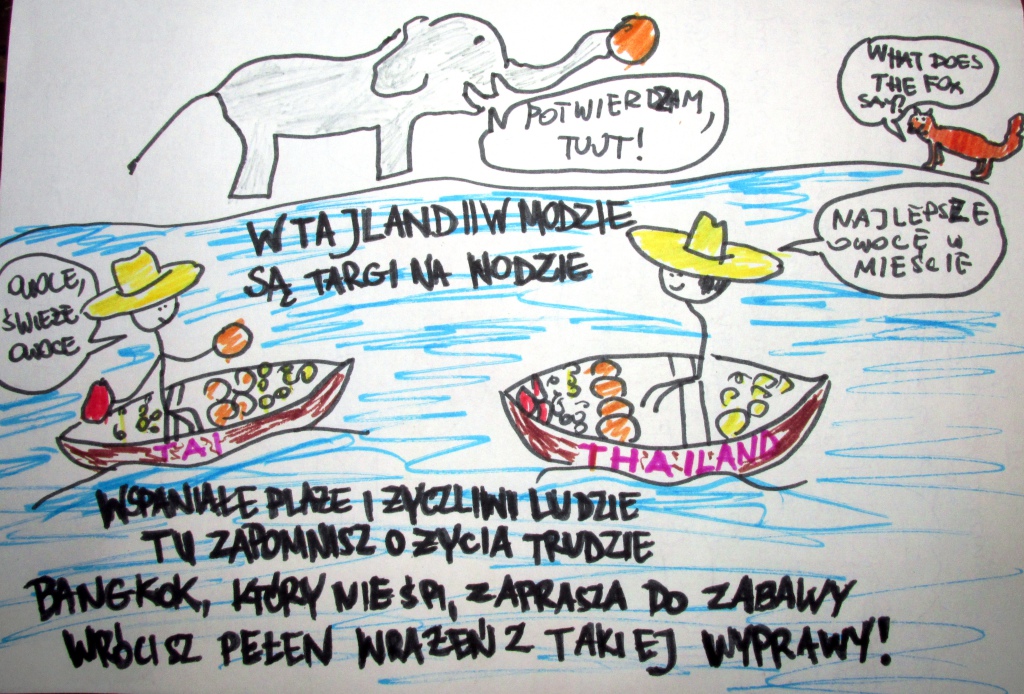 POTWIERDZAM,
TUUT!
WHAT DOES
THE FOX
SAY?
W TAJLANDII W MODZIE
SĄ TARGI NA WODZIE
NAJLEPSZE
OWOCE W
MIEŚCIE
OWOCE,
ŚWIEŻE
OWOCE
TAI
THAILAND
WSPANIAŁE PLAŻE I ŻYCZLIWI LUDZIE
TU ZAPOMNISZ O ŻYCIA TRUDZIE
BANGKOK, KTÓRY NIE ŚPI, ZAPRASZA DO ZABAWY
WRÓCISZ PEŁEN WRAŻEŃ Z TAKIEJ WYPRAWY!